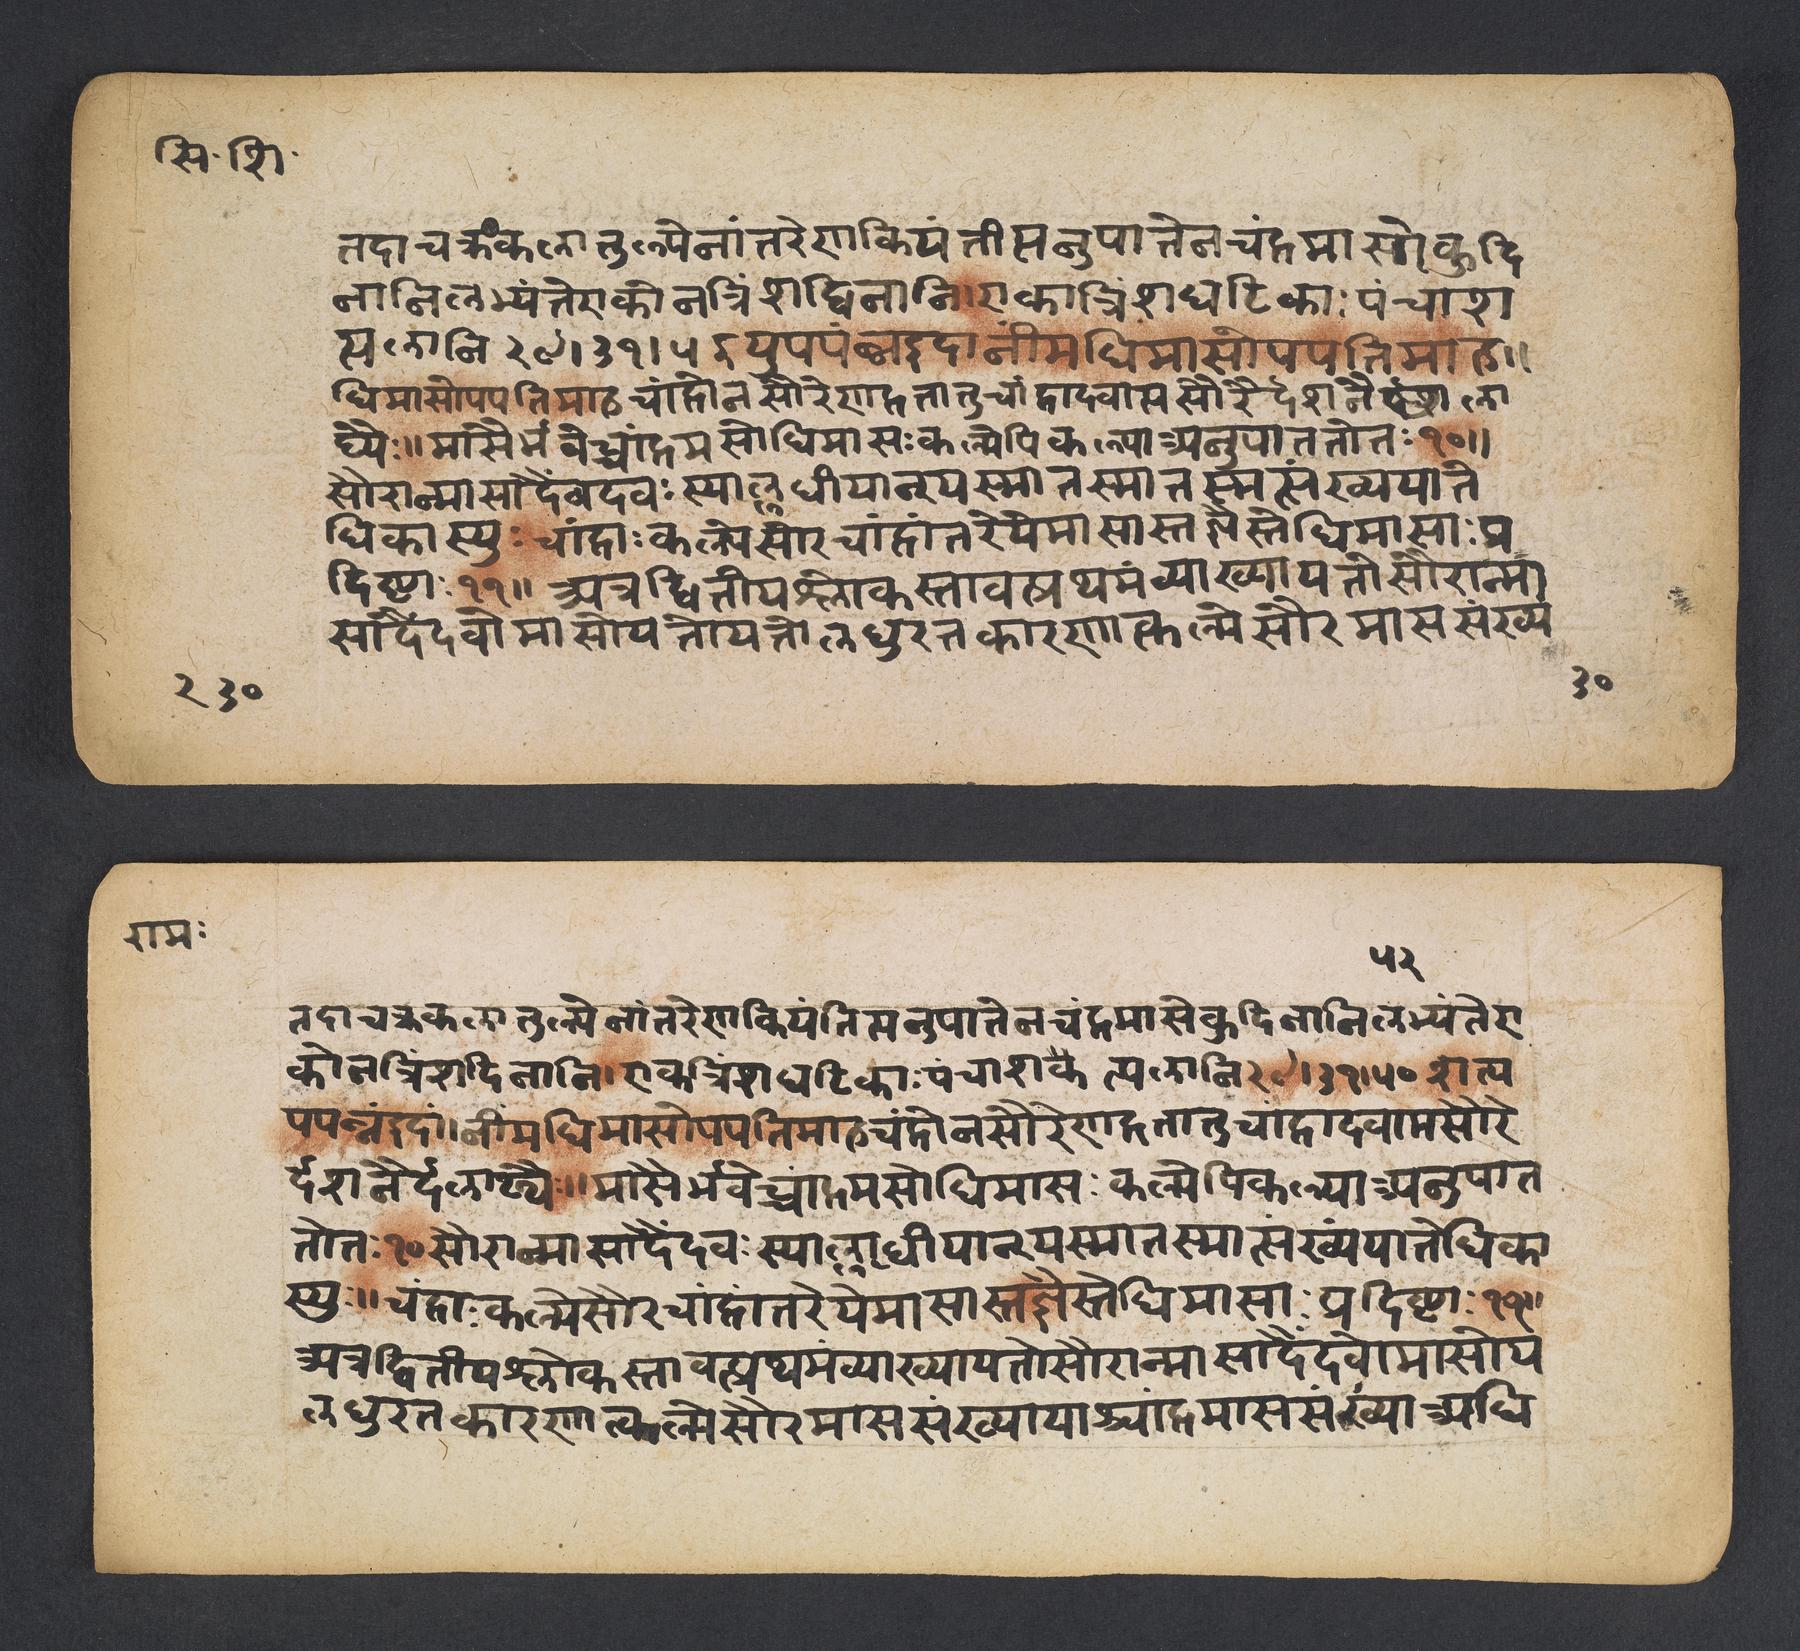 सि. शि.
तदा चक्रंकलातुल्येनांतरेणकियंतीत्यनुपातेनचंद्रमासोकुदि
नानिलभ्यंतेएकोनत्रिंशद्दिनानि।एकात्रिंशघटिकाः पंचाश
त्पलानि २९।३१।५
धिमासोपपतिमाह चांद्रोनसौरेणहतातुचांद्रादवाप्तसौरैर्दशनै
र्घ्यैः॥ मासैर्भवेच्चांद्रमसोधिमासःकल्पेपिकल्प्याअनुपाततोतः १०॥
सौरान्मासादैंवदवः स्याल्लघीयान्यस्मातस्मातस्मत्संख्ययाते
धिकास्युः चांद्राः कल्पेसौरचांद्रांतरेयेमासास्तज्ञैस्तेधिमासाः प्र
दिष्टाः ११॥ अत्रद्वितीयश्लोकस्तावत्प्रथमंव्याख्यायतोसौरान्मा
सादैंदवोमासोयतोयतोलघुरतकारणात्कल्पेसौरमाससंख्य
२ ३०
३०
रामः
५२
तदाचक्रकलातुल्येनांतरेणकियंतित्यनुपातेनचंद्रमासेकुदिनानिलभ्यंतेए
कोनत्रिंशदिनानि। एकत्रिंशघटिकाः पंचाशकेत्पलानि २९।३१।५० शात्प
पपन्नंइदां।नींमधिमासोपपतिमाहचंद्रोनसौरेणहतातुचांद्रादवाप्तसौरै
र्दशनैर्दलाढ्यैः॥ मासैर्भवेच्चांद्रमसोधिमासः कल्पेपिकल्प्याअनुपात
तोतः १० सौरान्मासादैंदवः स्याल्लघीयान्यस्मातस्मात्संख्ययातेधिका
स्युः॥ चंद्राः कल्पेसौरचांद्रांतरेयेमासास्तज्ञैस्तेधिमासाः प्रदिष्टाः ११॥
अत्रद्वितीयश्लोकस्तावत्प्रथमंव्याख्यायतोसौरान्मासादैंदवोमासोय
लघुरतकारणात्कल्पेसौरमाससंख्यायाश्चांद्रमाससंख्याअधि